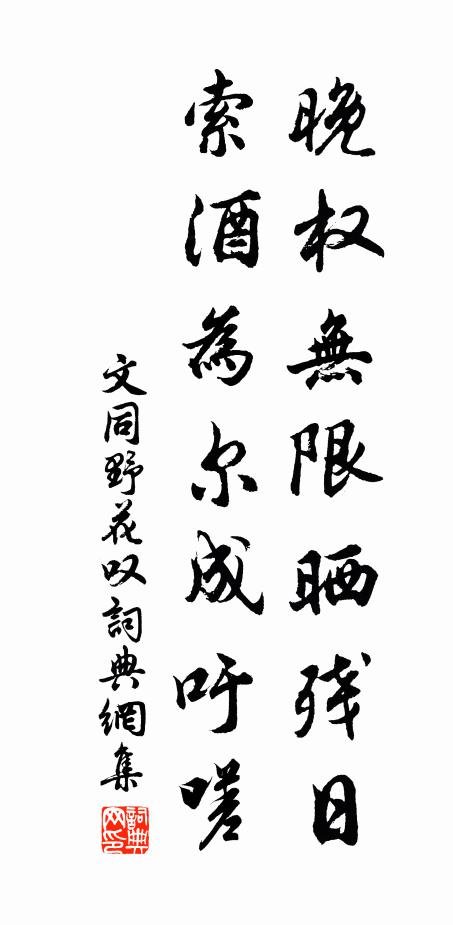 晚权無限晒残日
索酒為尔成吁嗟
文同野花叹詞典網集
詞典网印